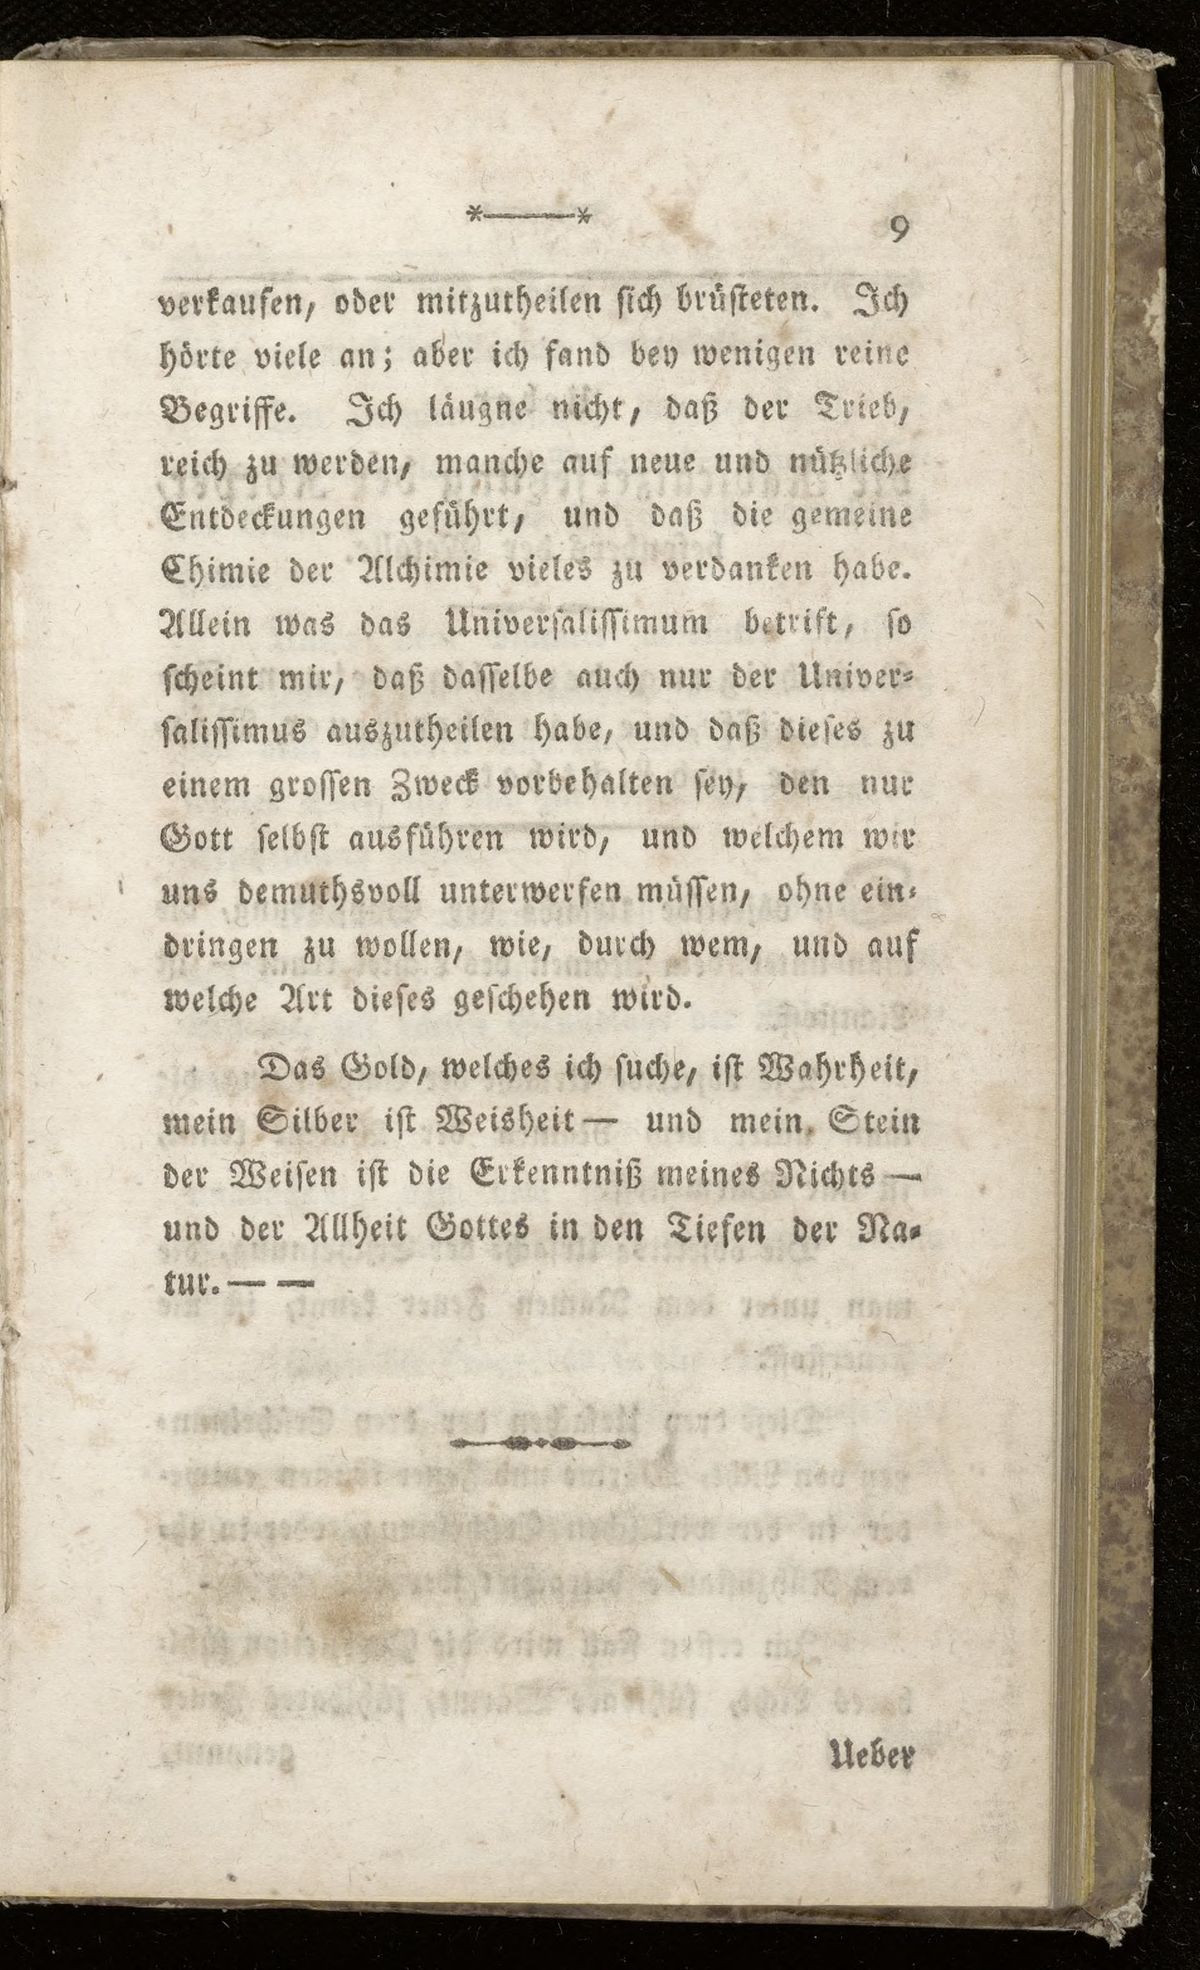 *———*
9
verkaufen, oder mitzutheilen ſich brüſteten. Ich
hörte viele an; aber ich fand bey wenigen reine
Begriffe. Ich läugne nicht, daß der Trieb,
reich zu werden, manche auf neue und nützliche
Entdeckungen geführt, und daß die gemeine
Chimie der Alchimie vieles zu verdanken habe.
Allein was das Univerſaliſſimum betrift, ſo
ſcheint mir, daß daſſelbe auch nur der Univer⸗
ſaliſſimus auszutheilen habe, und daß dieſes zu
einem groſſen Zweck vorbehalten ſey, den nur
Gott ſelbſt ausführen wird, und welchem wir
uns demuthsvoll unterwerfen müſſen, ohne ein⸗
dringen zu wollen, wie, durch wem, und auf
welche Art dieſes geſchehen wird.
Das Gold, welches ich ſuche, iſt Wahrheit,
mein Silber iſt Weisheit — und mein Stein
der Weiſen iſt die Erkenntniß meines Nichts —
und der Allheit Gottes in den Tiefen der Na⸗
tur. — —
Ueber